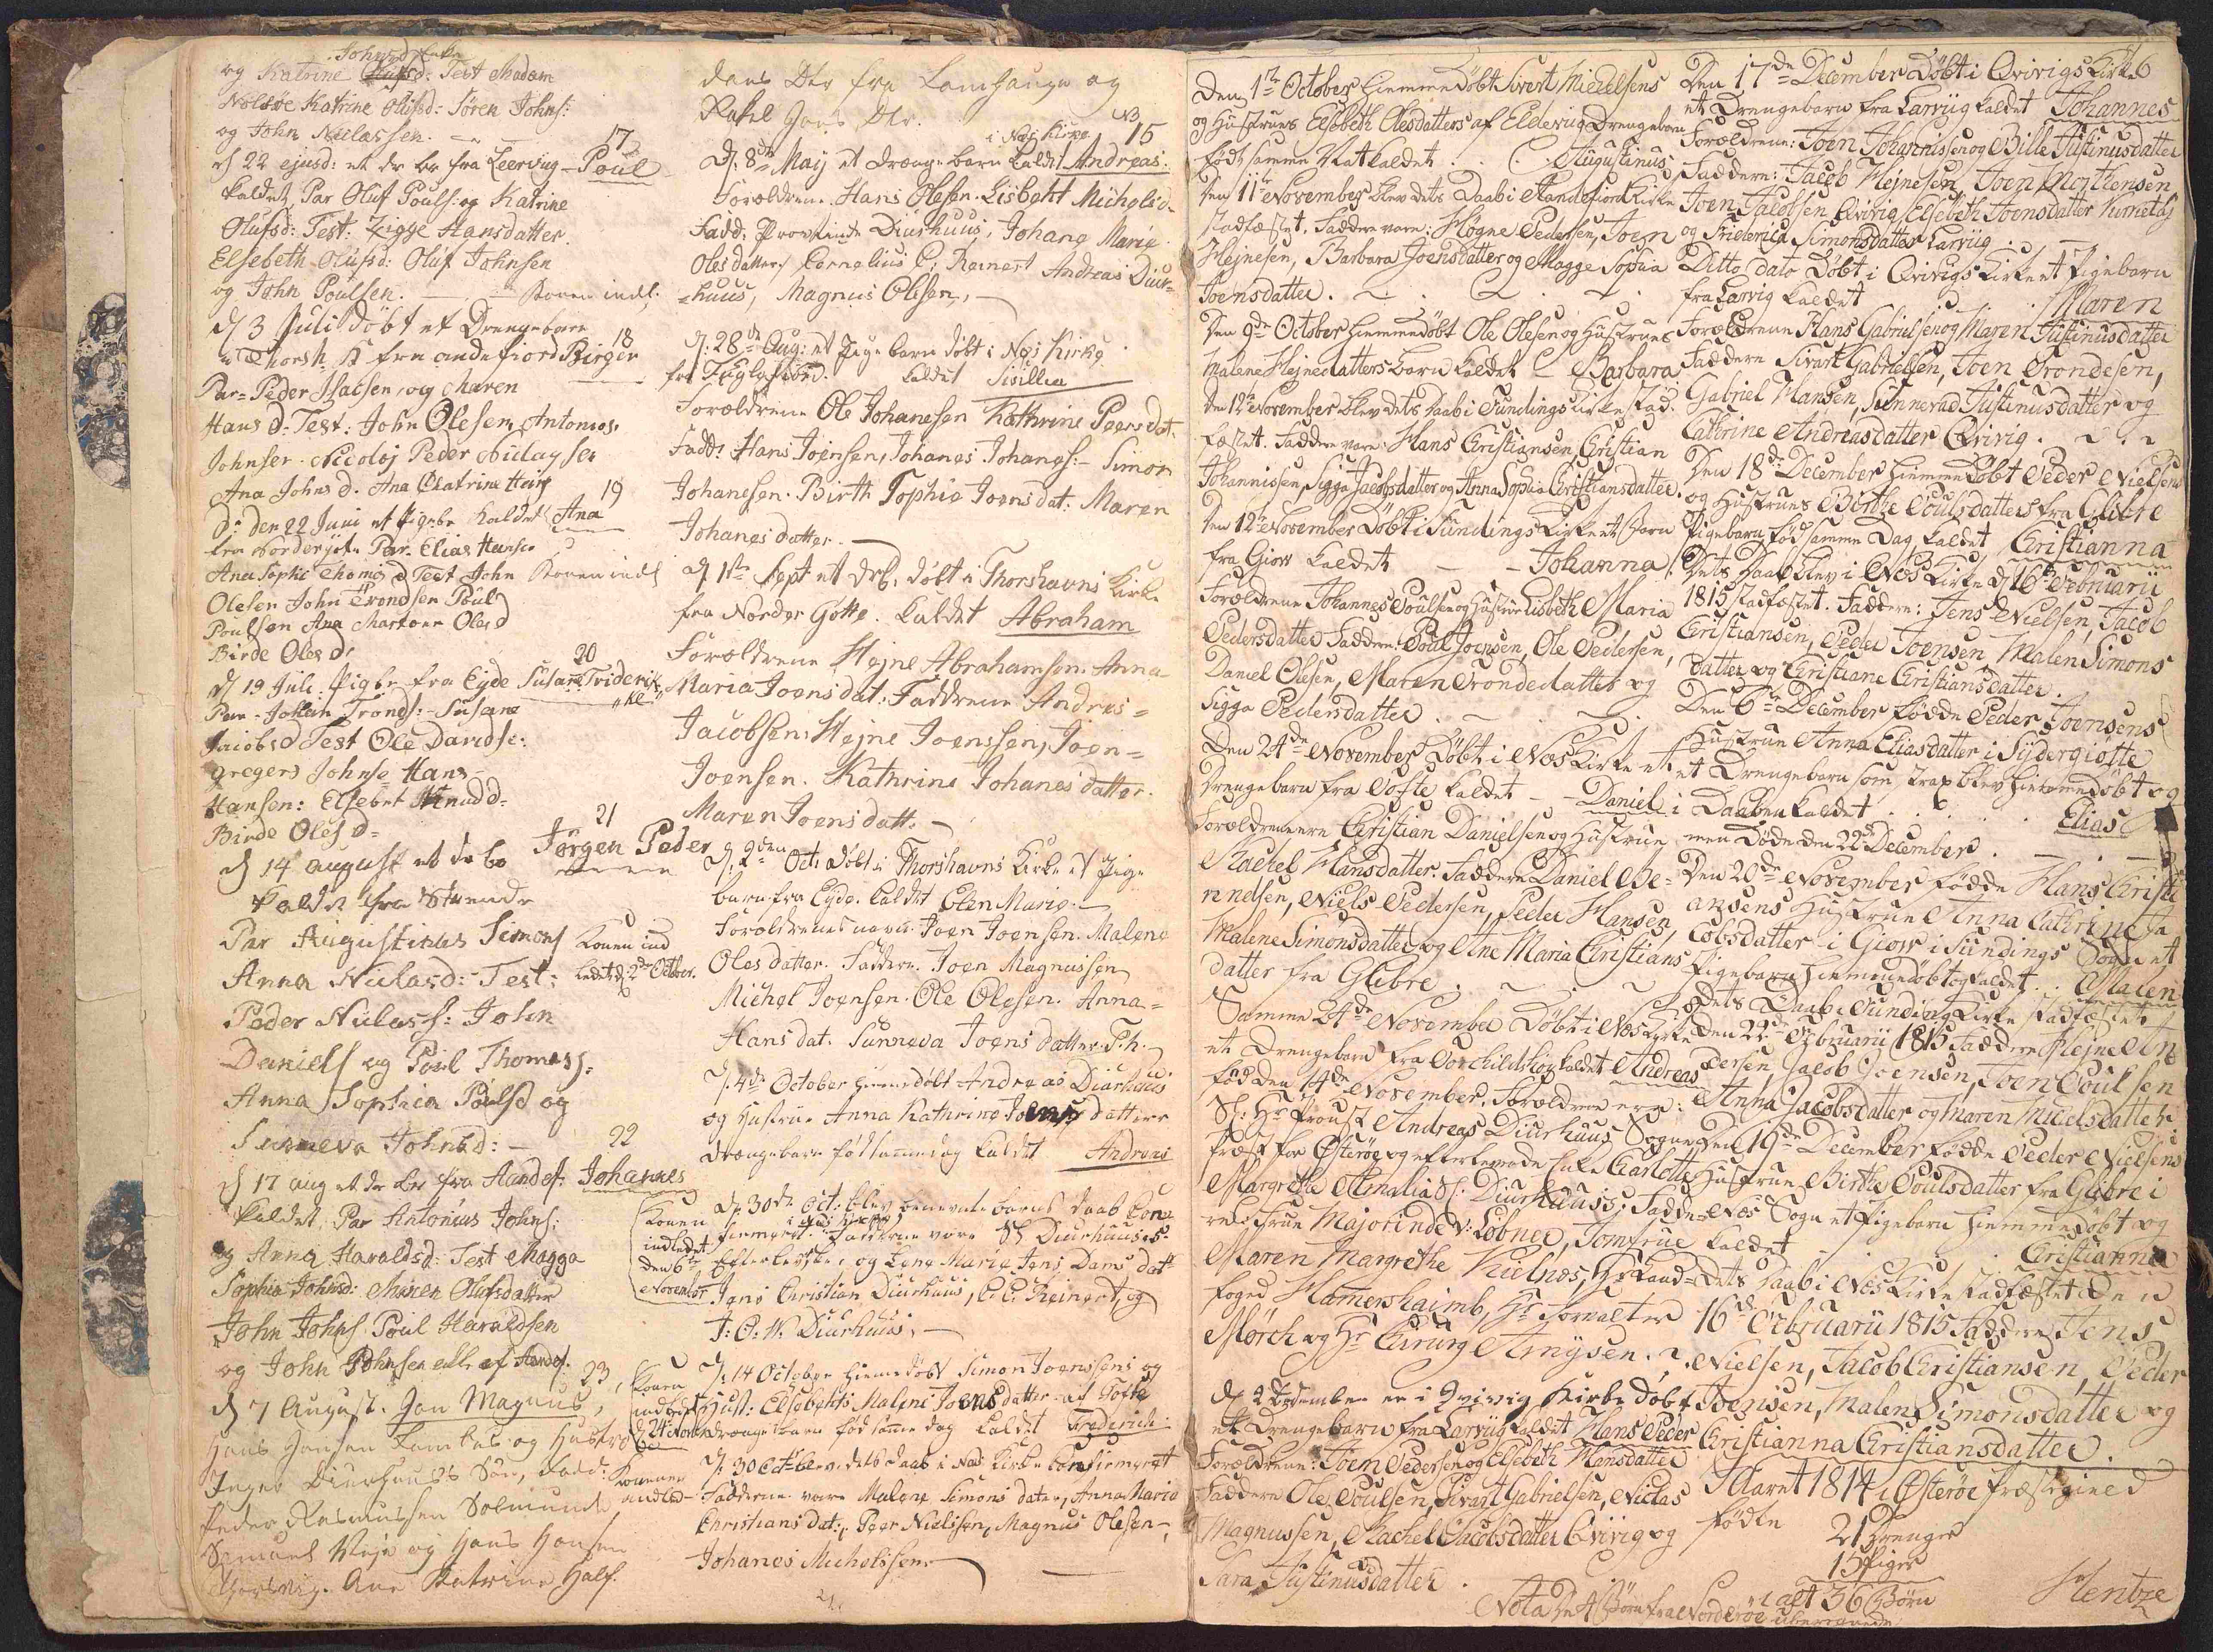 Johnsd
og Katrine Olufsd: Test Madam
Nolsöe Katrine Olufsd: Sören Johns:
og John Niclassen.
17
d 22 ejusd: et dr br fra Leervüg - Poul
kaldet, Par Oluf Pouls: og Katrine
Olufsd: Test: Zigge Hansdatter.
Elsebeth Olufsd: Oluf Johnsen
og John Poulsen. Konen indl:
d 3 Juli döbt et Drengebarn
18
i Thorsh. K fra andefiord Birger
Par = Peder Isacsen, og Maren
Hans d: Test: John Olesen, Antonios
Johnsen Nicolaj Peder Niclaysen
Ana Johns d. Ana Chatrine Hans
19
d: den 22 Juni et Pigebr kaldet Ana
fra Nordergöte Par. Elias Hansen
Ana Sophie Thomes d Test John Konen indl
Olesen John Trondsen Poul
Poulsen Ana Marhone Oles d
Birde Oles d:
20
d 19 Juli Pigebr fra Eyde Susane Friderik
Par. Johan Tronds: Susana
Jacobs d Test Ole Davidse:
gregers Johnse Hans
Hansen: Elsebet Knud d=
Birde Oles d=
21
d 14 august et dr br Jörgen Peder
kaldet fra Strende
Par Augustinus Simons Konen ind
Anna Niclasd: Test: ledet d: 2de Octbr.
Peder Niclass: John
Daniels og Poul Thomess:
Anna Sophia Poulsd og
Sunneva Johnsd:
22
d 17 aug et dr br fra Handef: Johannes
kaldet, Par Antonius Johns:
og Anna Haraldsd: Test Magga
Sophia Johnsd: Maren Olufsdatter
John Johns Poul Haraldsen
og John Johnsen alle af Handef.
23
d 7 August. Jon Magnus,
Hans Hansen Lambas og Hustrü
Inger Diurhuus's Sön, Fadd:
Peder Rasmussen Solmunde
Samuel Weje og Hans Hansen
Thorsvig. Ane Katrine Half.
dans Dtr fra Lamhauge og
Rakel Jons Dtr.
i Næs Kirke 15
d: 8de May et drænge barn kaldet Andreas.
Forældrene. Hans Olesen. Lisbeht Michelsd.
Fadd: Provstinde Diurhuus, Johane Marie
Olesdatter, Cornelius C: Reinert Andreas Diur=
=huus, Magnus Olesen,
d: 28de Aug: et Pige barn döbt i Næs Kirke
fra Fuglefiord. kaldet Sisillia
Forældrene Ole Johanesen Kathrine Peersdat.
Fadd: Hans Joensen, Johanes Johanes: Simon
Johanesen. Birth Sophie Joensdat: Maren
Johanes datter.
d 1ste Sept et drb. döbt i Thorshavns Kirke
fra Norder Götte. kaldet Abraham
Forældrene Hejne Abrahamsen. Anna
Maria Joensdat: Faddrene Andres=
Jacobsen. Hejne Joenssen, Joen=
Joensen. Kathrine Johanes datter.
Maren Joensdatt.
d. 2den Oct: döbt i Thorshavns Kirke et Pige
barn fra Eyde. kaldet Elen Marie.
Forældrenes navn. Joen Joensen. Malene
Oles datter. Faddere. Joen Magnussen
Michel Joensen. Ole Olesen. Anna=
Hans dat. Sunneva Joens datter. T.h.
d: 4de October hiemedöbt Andreas Diurhuus
og Hustrue Anna Kathrine Joensdatters
drængebarn föd samme dag kaldet Andreas
Konen indledet den 6te November
d: 30de Oct: blev benævnte barns daab Con=
firmeret. i Næs Kirke Faddrene vare Sl Diurhuuses
Efterleverske, og Lene Marie Jens Dams dat
Jens Christian Diurhuus, C. C. Reinert, og
J: C: W. Diurhuus,
Konen indledet d: 24 Novbr
d: 14 October hiemedöbt Simon Joenssens og
Hust: Elsebehts Malene Joensdatter af Tofte
drænge barn föd same dag kaldet Frederich:
Konenen indled-
d: 30 Oct blev dets daab i Næs Kirke Confirmeret
Fadderne vare Malene Simons dater, Anna Maria
Christians dat:, Peer Nielssen, Magnus Olesen,
Johanes Michelssen.
Den 1ste October hiemmedöbt Sivert Michelsens
og Hustrues Elsebeth Olesdatters af Eldevüg Drengebarn
födt samme Nat kaldet. . . Augustinus
Den 11te November blev dets Daab i Andefiord Kirke
stadfæstet. Faddere vare: Högne Pedersen, Joen
Hejnesen, Barbara Joensdatter og Magge Sophia
Joensdatter.
Den 9de October hiemmedöbt Ole Olesen og Hustrues
Malene Hejnesdatters barn kaldet Barbara
Den 12te November blev dets daab i Sundings Kirke stad:
fæstet. Faddere vare: Hans Christiansen, Christian
Johannissen, Sigga Jacobsdatter og Anna Sophia Christiansdatter.
Den 12te November döbt i Sundings Kirke et barn
fra Giow kaldet - - Johanna
Forældrene Johannes Poulsen og Hustrue Lisbeth Maria
Pedersdatter Faddere: Poul Joensen, Ole Pedersen,
Daniel Olesen, Maren Trondedatter og
Sigga Pedersdatter.
Den 24de November döbt i Næs Kirke et
Drengebarn fra Tofte kaldet - - Daniel
Forældrene ere Christian Danielsen og Hustrue
Rachel Hansdatter. Faddere Daniel Be=
rendsen, Niels Pedersen, Peder Hansen,
Malene Simonsdatter og Ane Maria Christians
datter fra Glibre.
Samme 24de November döbt i Næs Kirke
et Drengebarn fra Torchildshöy kaldet Andreas
föd den 14de November. Forældrene ere:
Sl: Hr Proust Andreas Diurhuus Sogne
præst for Österöe og efterlevende Enke Charlotte
Margrethe Amalia Sl: Diurhuus's; Fadde=
re: Frue Majorinde v: Löbner, Jomfrue
Maren Margrethe Hielnes, Hr Land=
foged Hamershaimb, Hr Forvalter
Mörch og Hr Chirurg Arnysen.
d 2 December er i Qvivig Kirke döbt
et Drengebarn fra Larvüg kaldet Hans Peder
Forældrene: Joen Pedersen og Elsebeth Hansdatter
Faddere Ole Poulsen, Sivart Gabrielsen, Niclas
Magnussen, Rachel Jacobsdatter Qvivig og
Sara Justinusdatter.
Den 17de December Döbt i Qvivigs Kirke
et Drengebarn fra Larvüg kaldet Johannes
Forældrene: Joen Johannissen og Bille Justinusdatter
Faddere: Jacob Hejnesen, Joen Morthensen,
Joen Jacobsen Qvivig, Elsebeth Joensdatter
og Friderica Simonsdatter Larvüg.
Ditto dato Döbt i Qvivigs Kirke et Pigebarn
fra Larvig kaldet Maren
Forældrene Hans Gabrielsen og Maren Justinusdatter
Faddere Sivart Gabrielsen, Joen Trondesen,
Gabriel Hansen, Sunnevad Justinusdatter og
Cathrine Andreasdatter Qvivig.
Den 18de December hiemmedöbt Peder Nielsens
og Hustrues Birthe Poulsdatters fra Glibre
Pigebarn föd samme Dag kaldet Christianna
Dets Daab blev i Næs Kirke d 16de Februarii
1815 stadfæstet. Faddere: Jens Nielsen, Jacob
Christiansen, Peder Joensen Malen Simons
datter og Christiane Christiansdatter.
Den 6te December födde Peder Joensens
Hustrue Anna Eliasdatter i Sydergiötte
et Drengebarn som strax blev hiemmedöbt og
i Daaben kaldet Elias
men döde den 22de December.
Den 20de November födde Hans Christi
ansens Hustrue Anna Catherine Ja
cobsdatter i Giow i Sundings Sogn et
Pigebarn hiemmedöbt og kaldet. . Malen
Dets Daab i Sundings Kirke stadfæstet
den 22de Februarii 1815 Faddere Hejne An
dersen, Jacob Joensen, Joen Poulsen
Anna Jacobsdatter og Maren Michelsdatter
Den 19de December födde Peder Nielsens
Hustrue Birthe Poulsdatter fra Glibre i
Næs Sogn et Pigebarn hiemmedöbt og
kaldet Christianna
Dets Daab i Næs Kirke stadfæstet den
16de Februarii 1815 Faddere Jens
Nielsen, Jacob Christiansen, Peder
Joensen, Malen Simonsdatter og
Christianna Christiansdatter.
I Aaret 1814 i Österöe Præstegield
födte 21 Drenger
15 Piger
i alt 36 Börn
Hentze
Nota Det Börn fra Norderöe